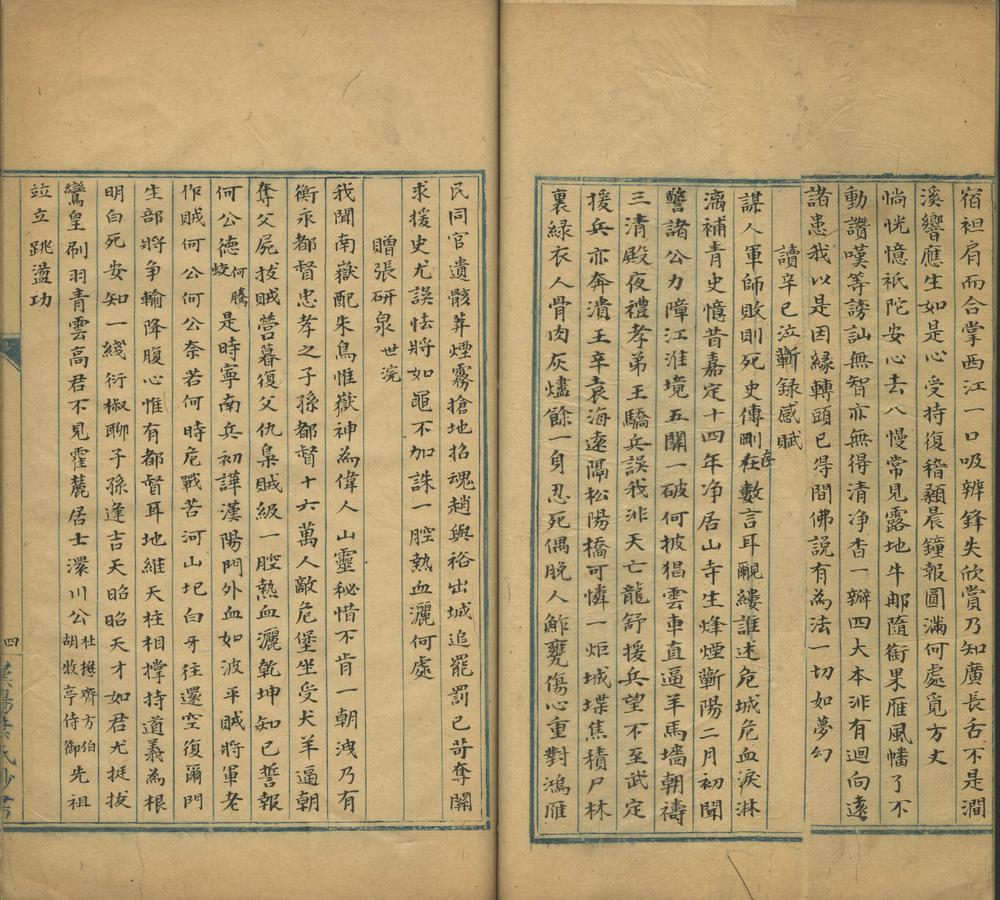 宿袒肩而合掌西江一口吸辨鋒失欣賞乃知廣長舌不是澗
溪響應生如是心受持復稽顙晨鐘報圓滿何處覓方丈
惝恍憶祇陀安心去八慢常見露地牛郍隨銜果雁風幡了不
動讚嘆等謗訕無智亦無得清净香一瓣四大本非有迴向遠
諸恚我以是因緣轉頭已得間佛説有為法一切如夢幻
讀辛巳泣蘄録感賦
謀人軍師敗則死史傳剛在存數言耳覼縷誰述危城危血淚淋
漓補青史憶昔嘉定十四年净居山寺生烽煙蘄陽二月初聞
警諸公力障江淮境五關一破何披猖雲車直逼羊馬墻朝禱
三清殿夜禮孝弟王驕兵誤我非天亡龍舒援兵望不至武定
援兵亦奔潰王辛袁海遠隔松陽橋可憐一炬城堞焦積尸林
裏緑衣人骨肉灰燼餘一身忍死偶脱人鮓甕傷心重對鴻雁
民同官遺骸葬煙霧搶地招魂趙與裕出城追罷罰已苛奪關
求援史尤誤怯將如黽不加誅一腔熱血灑何處
贈張研泉世浣
我聞南嶽配朱鳥惟嶽神為偉人山靈秘惜不肯一朝洩乃有
衡永都督忠孝之子孫都督十六萬人敵危堡坐受犬羊逼朝
奪父屍拔賊營暮復父仇梟賊級一腔熱血灑乾坤知已誓報
何公德何騰蛟是時寧南兵初譁漢陽門外血如波平賊將軍老
作賊何公何公奈若何時危戰苦河山圮白牙往還空復爾門
生部將争輸降腹心惟有都督耳地維天柱相撐持道義為根
明白死安知一綫衍椒聊子孫逢吉天昭昭天才如君尤挺拔
鸞皇刷羽青雲高君不見霍麓居士濴川公杜樾齊方伯胡牧亭侍御先祖
竝立跳盪功
四
漢陽葉氏鈔書